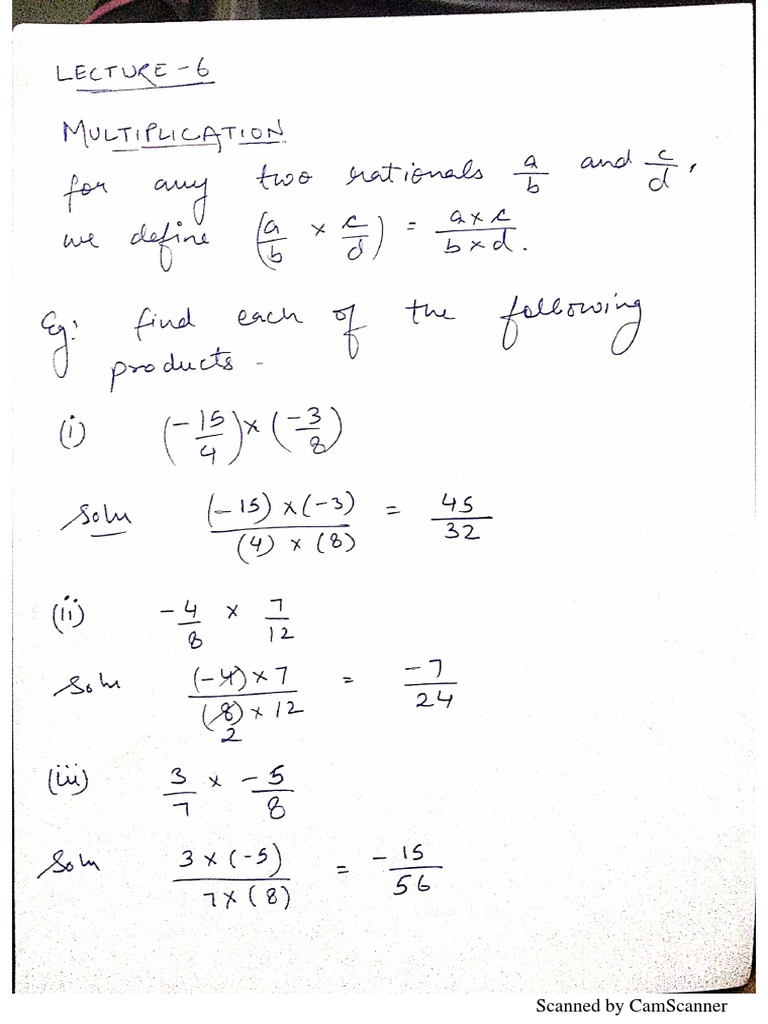 LECTURE - 6
MULTIPLICATION
for any two rationals a/b and c/d,
we define (a/b × c/d) = a×c / b×d.
Eg: find each of the following
products -
(i) (-15/4) × (-3/8)
Soln (-15) × (-3) / (4) × (8) = 45/32
(ii) -4/8 × 7/12
Soln (-4) × 7 / (8) × 12 = -7/24
2
(iii) 3/7 × -5/8
Soln 3 × (-5) / 7 × (8) = -15/56
Scanned by CamScanner